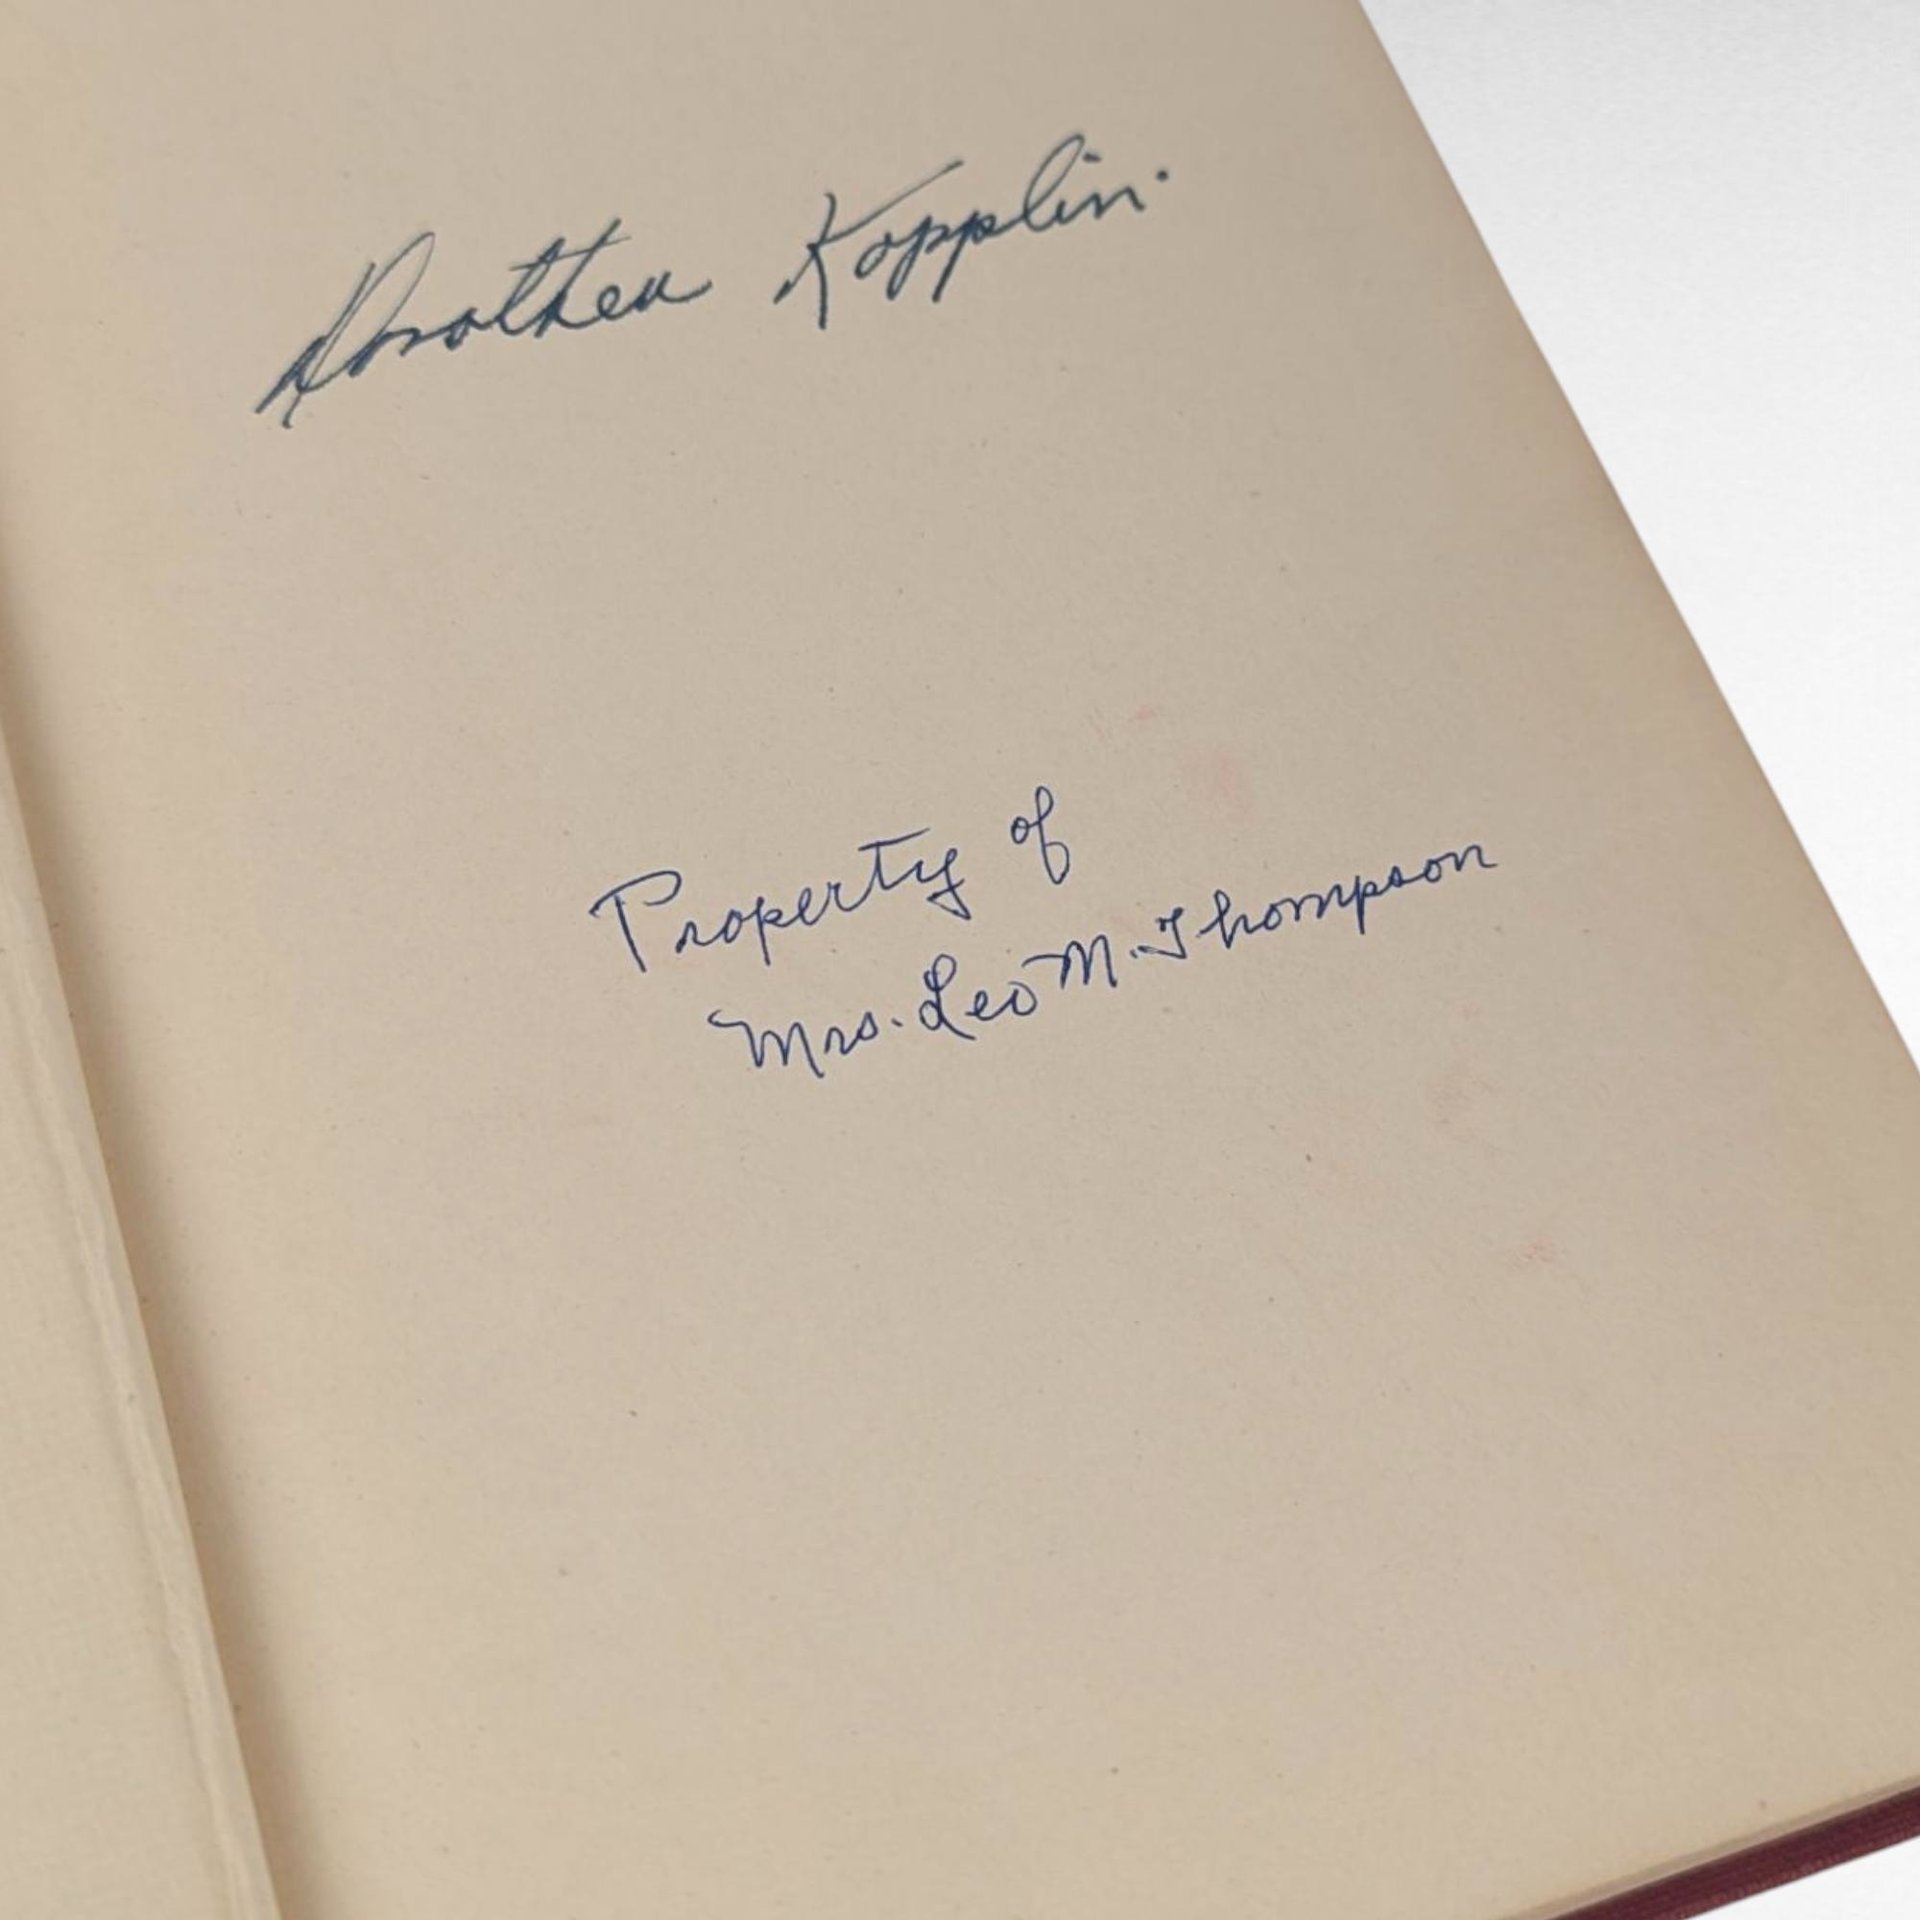 Dorothea Kopplin.
Property of
Mrs. Leo M. Thompson